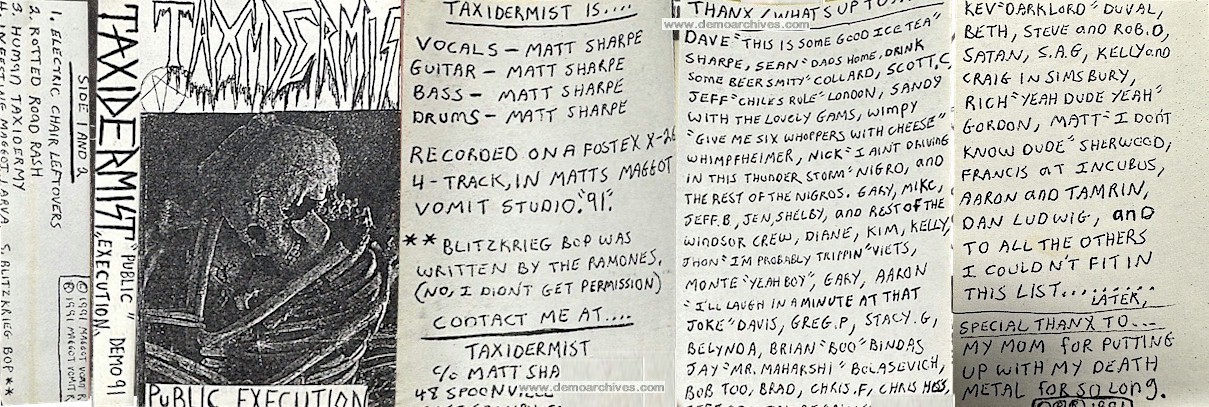 SIDE 1 AND 2
1. ELECTRIC CHAIR LEFTOVERS
2. ROTTED ROAD RASH
3. HUMAN TAXIDERMY
4. INFESTING MAGGOT LARVA 5. BLITZKRIEG BOP **
© 1991 MAGGOT VOMIT
℗ 1991 MAGGOT VOMIT
TAXIDERMIST "PUBLIC EXECUTION" DEMO 91
TAXIDERMIST
PUBLIC EXECUTION
TAXIDERMIST IS....
VOCALS - MATT SHARPE
GUITAR - MATT SHARPE
BASS - MATT SHARPE
DRUMS - MATT SHARPE
RECORDED ON A FOSTEX X-26
4-TRACK, IN MATTS MAGGOT
VOMIT STUDIO. "91".
** BLITZKRIEG BOP WAS
WRITTEN BY THE RAMONES.
(NO, I DIDN'T GET PERMISSION)
CONTACT ME AT....
TAXIDERMIST
C/O MATT SHA
48 SPOONVILLE
www.demoarchives.com
THANX/WHATS UP TO....
www.demoarchives.com
DAVE "THIS IS SOME GOOD ICE TEA"
SHARPE, SEAN "DADS HOME, DRINK
SOME BEER SMITY" COLLARD, SCOTT.C,
JEFF "CHILES RULE" LONDON, SANDY
WITH THE LOVELY GAMS, WIMPY
"GIVE ME SIX WHOPPERS WITH CHEESE"
WHIMPFHEIMER, NICK "I AINT DRIVING
IN THIS THUNDER STORM" NIGRO, AND
THE REST OF THE NIGROS. GARY, MIKE,
JEFF.B, JEN, SHELBY, AND REST OF THE
WINDSOR CREW, DIANE, KIM, KELLY,
JHON "I'M PROBABLY TRIPPIN" VIETS,
MONTE "YEAH BOY", GARY, AARON
"I'LL LAUGH IN A MINUTE AT THAT
JOKE" DAVIS, GREG.P, STACY.G,
BELYNDA, BRIAN "BOO" BINDAS
JAY "MR. MAHARSHI" BOLASEVICH,
BOB TOO, BRAD, CHRIS.F, CHRIS HESS,
KEV "DARKLORD" DUVAL,
BETH, STEVE AND ROB.D,
SATAN, S.A.G, KELLY AND
CRAIG IN SIMSBURY,
RICH "YEAH DUDE YEAH"
GORDON, MATT "I DON'T
KNOW DUDE" SHERWOOD,
FRANCIS AT INCUBUS,
AARON AND TAMRIN,
DAN LUDWIG, AND
TO ALL THE OTHERS
I COULDN'T FIT IN
THIS LIST.........
LATER,
SPECIAL THANX TO...
MY MOM FOR PUTTING
UP WITH MY DEATH
METAL FOR SO LONG.
1991